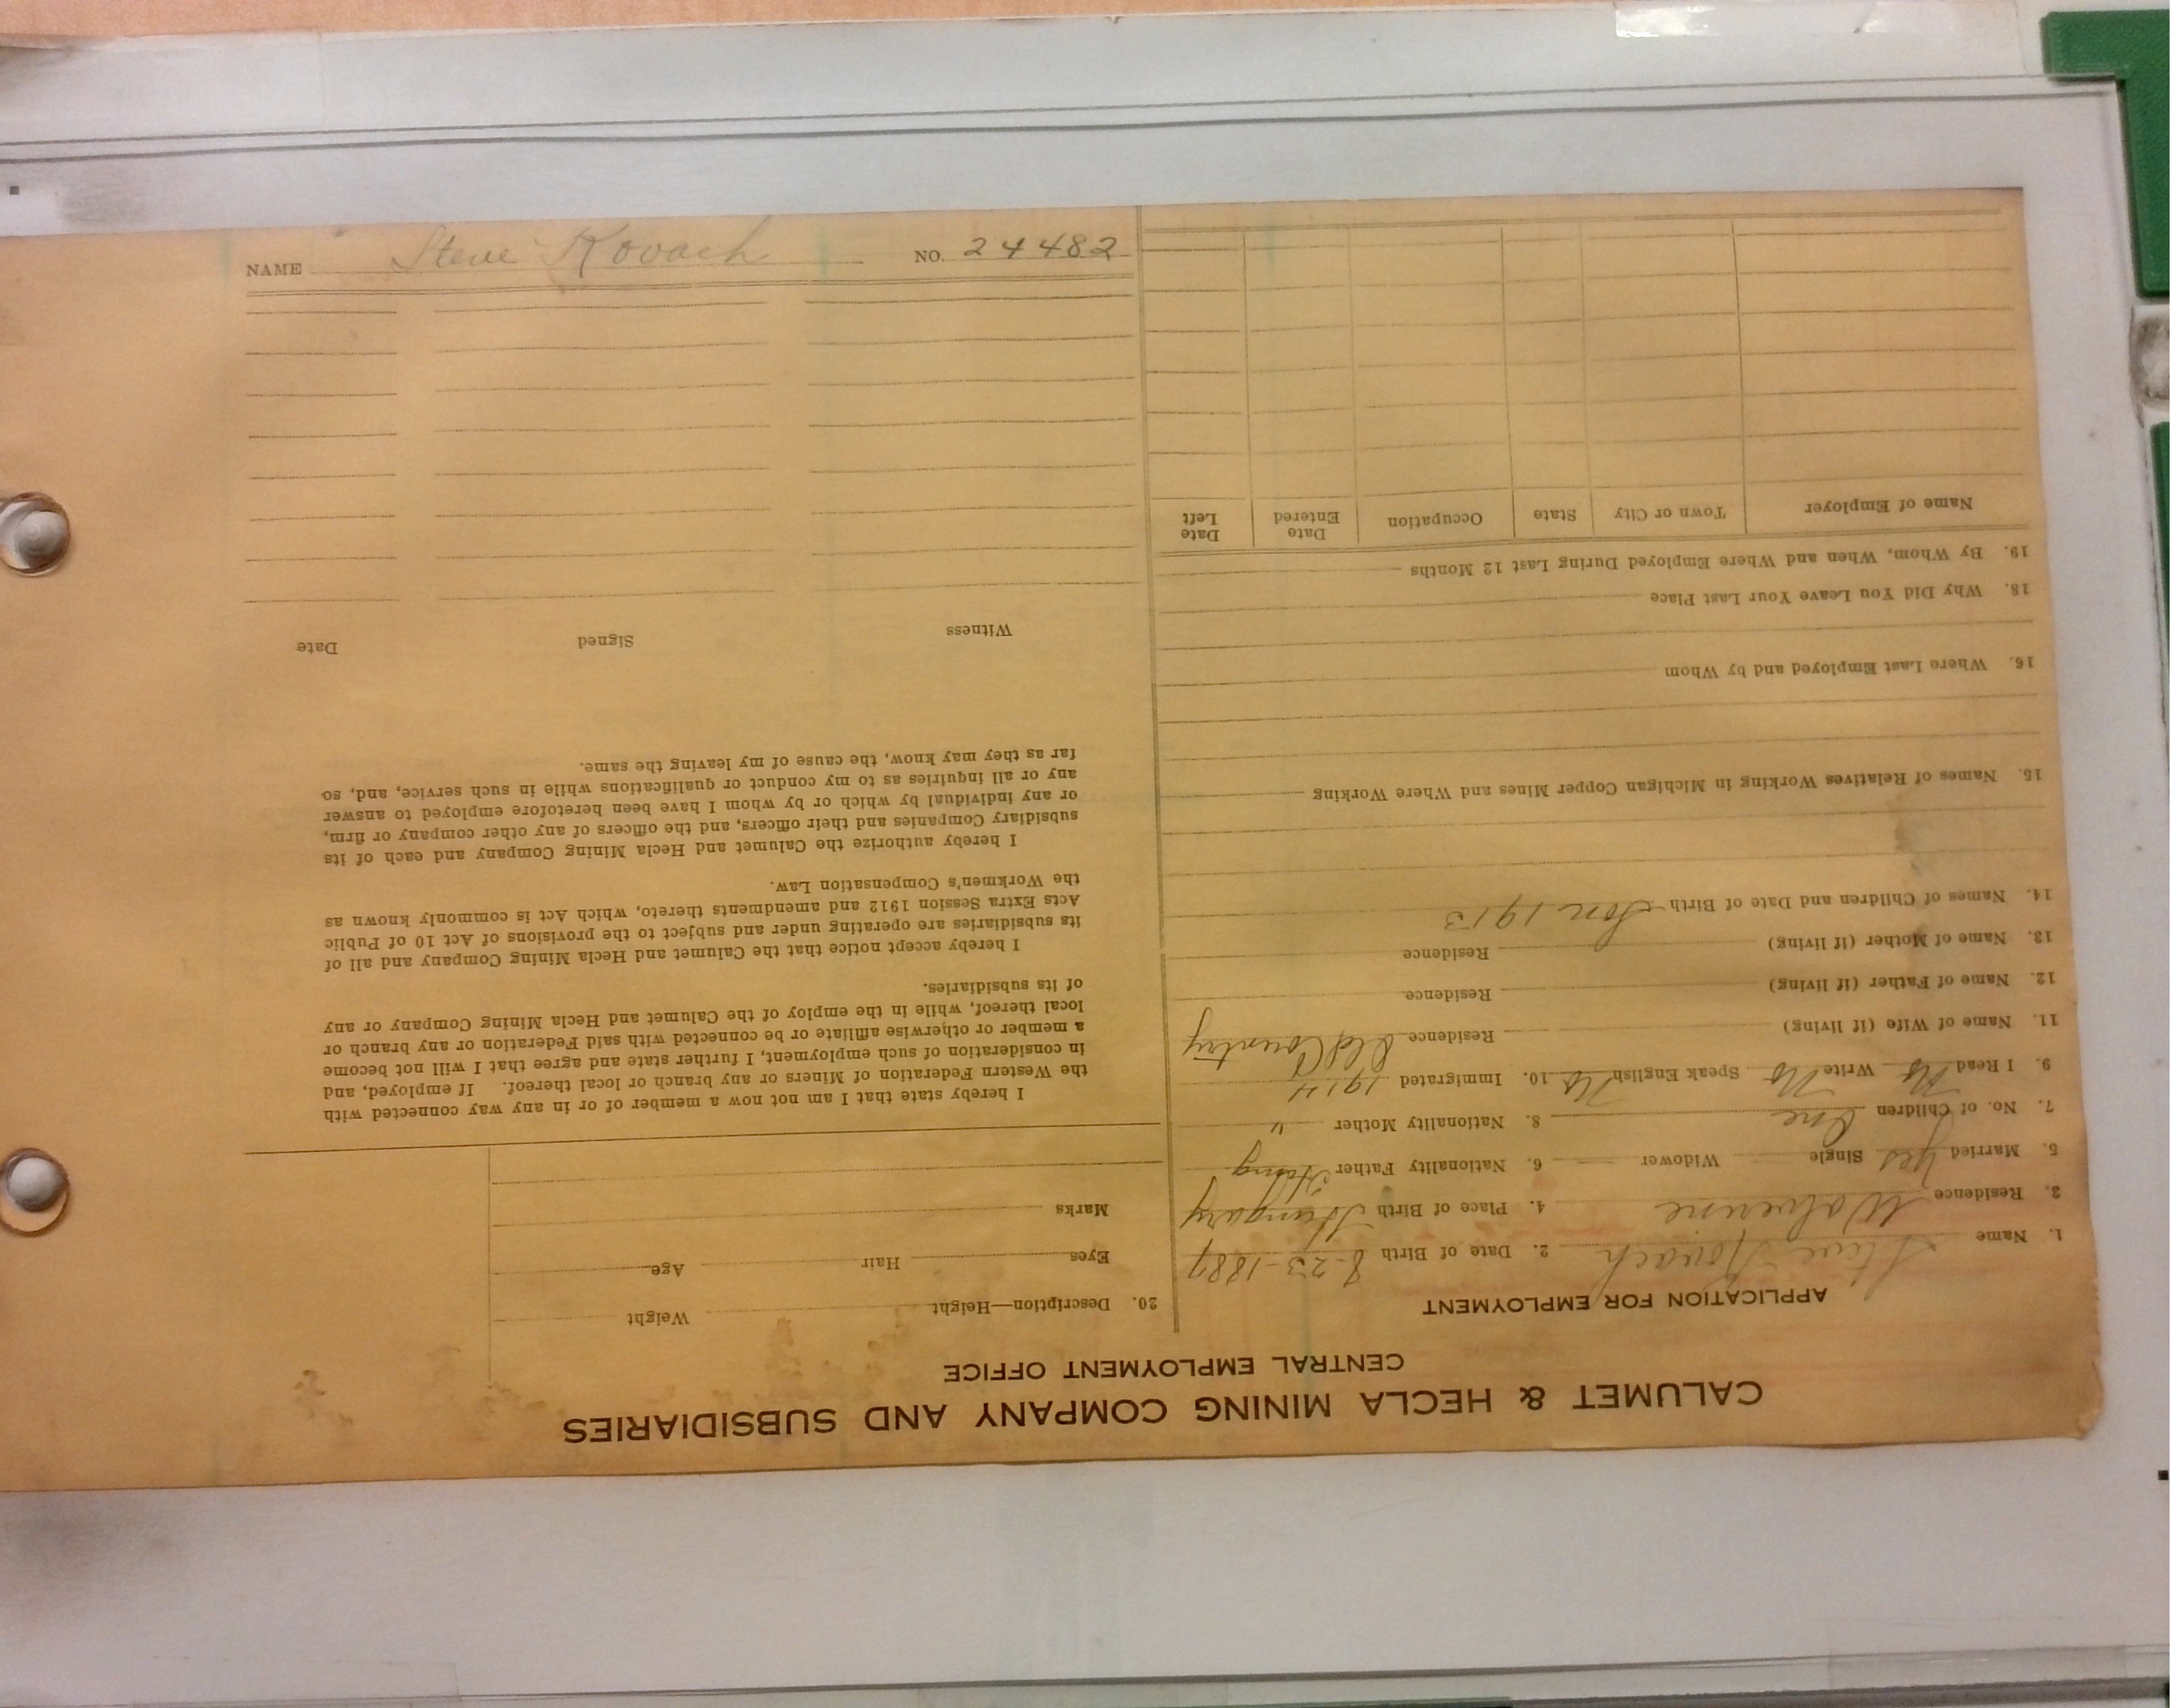 CALUMET & HECLA MINING COMPANY AND SUBSIDIARIES
CENTRAL EMPLOYMENT OFFICE
APPLICATION FOR EMPLOYMENT
1. Name Steve Kovach 2. Date of Birth 8-23-1887
3. Residence Wolverine 4. Place of Birth Hungary
5. Married Yes Single Widower 6. Nationality Father Hung
7. No. of Children One 8. Nationality Mother "
9. I Read No Write No Speak English No 10. Immigrated 1914
11. Name of Wife (if living) Residence Old Country
12. Name of Father (if living) Residence
13. Name of Mother (if living) Residence
14. Names of Children and Date of Birth Son 1913
15. Names of Relatives Working in Michigan Copper Mines and Where Working
16. Where Last Employed and by Whom
18. Why Did You Leave Your Last Place
19. By Whom, When and Where Employed During Last 12 Months
Name of Employer Town or City State Occupation Date Entered Date Left
20. Description—Height Weight
Eyes Hair Age
Marks
I hereby state that I am not now a member of or in any way connected with
the Western Federation of Miners or any branch or local thereof. If employed, and
in consideration of such employment, I further state and agree that I will not become
a member or otherwise affiliate or be connected with said Federation or any branch or
local thereof, while in the employ of the Calumet and Hecla Mining Company or any
of its subsidiaries.
I hereby accept notice that the Calumet and Hecla Mining Company and all of
its subsidiaries are operating under and subject to the provisions of Act 10 of Public
Acts Extra Session 1912 and amendments thereto, which Act is commonly known as
the Workmen's Compensation Law.
I hereby authorize the Calumet and Hecla Mining Company and each of its
subsidiary Companies and their officers, and the officers of any other company or firm,
or any individual by which or by whom I have been heretofore employed to answer
any or all inquiries as to my conduct or qualifications while in such service, and, so
far as they may know, the cause of my leaving the same.
Witness Signed Date
NAME Steve Kovach NO. 24482